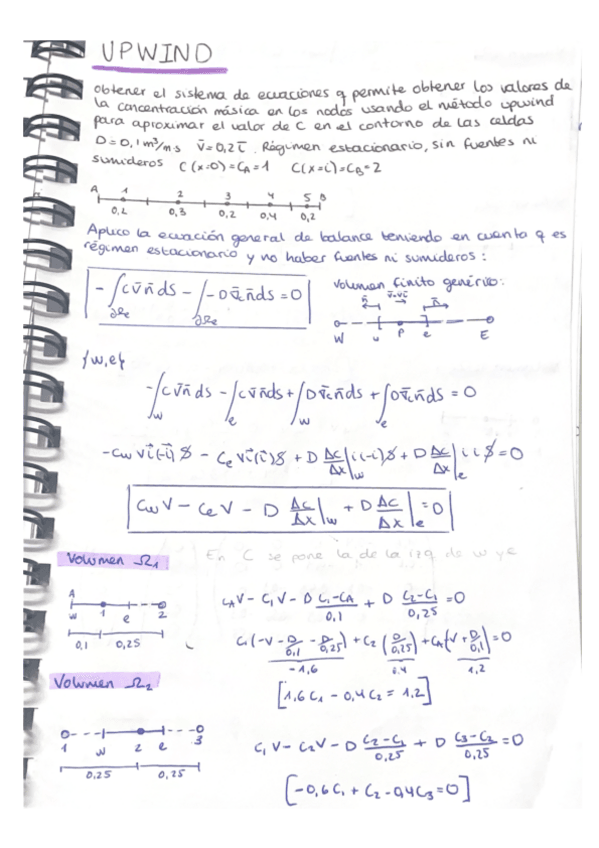 UPWIND
obtener el sistema de ecuaciones q permite obtener los valores de
la concentración másica en los nodos usando el método upwind
para aproximar el valor de C en el contorno de las celdas
D = 0,1 m³/m·s v̄ = 0,2 ī. Régimen estacionario, sin fuentes ni
sumideros C(x=0)=C_A=1 C(x=L)=C_B=2
A 1 2 3 4 5 B
0,2 0,3 0,2 0,4 0,2
Aplico la ecuación general de balance teniendo en cuenta q es
régimen estacionario y no haber fuentes ni sumideros:
-∫ C v̄ n̄ dS - ∫ -D ∇̄c n̄ dS = 0
volumen finito genérico:
n̄ v̄=vī n̄
W w P e E
{w,e}
-∫_w C v̄ n̄ dS - ∫_e C v̄ n̄ dS + ∫_w D ∇̄c n̄ dS + ∫_e D ∇̄c n̄ dS = 0
-C_w v i⃗(-i⃗) S - C_e v i⃗(i⃗) S + D Δc/Δx|_w i(-i) S + D Δc/Δx|_e i i S = 0
C_w V - C_e V - D Δc/Δx|_w + D Δc/Δx|_e = 0
Volumen Ω₁
En C se pone la de la izq de w y e
A
w 1 e 2
0,1 0,25
C_A V - C₁ V - D (C₁-C_A)/0,1 + D (C₂-C₁)/0,25 = 0
C₁(-V - D/0,1 - D/0,25) + C₂(D/0,25) + C_A(V + D/0,1) = 0
-1,6 0,4 1,2
[1,6 C₁ - 0,4 C₂ = 1,2]
Volumen Ω₂
1 w 2 e 3
0,25 0,25
C₁ V - C₂ V - D (C₂-C₁)/0,25 + D (C₃-C₂)/0,25 = 0
[-0,6 C₁ + C₂ - 0,4 C₃ = 0]